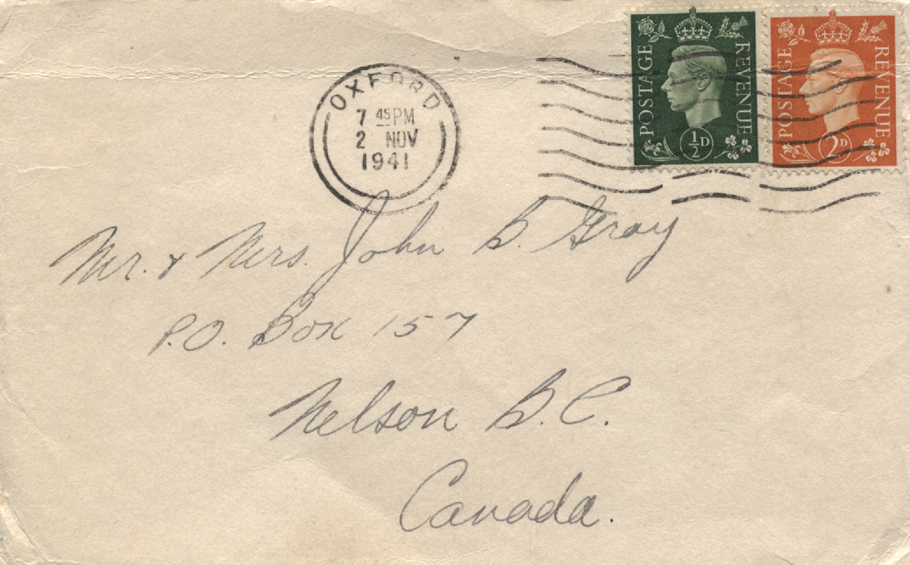 POSTAGE REVENUE
½D
POSTAGE REVENUE
2D
OXFORD
7 45PM
2 NOV
1941
Mr. & Mrs. John B. Gray
P.O. Box 157
Nelson B.C.
Canada.